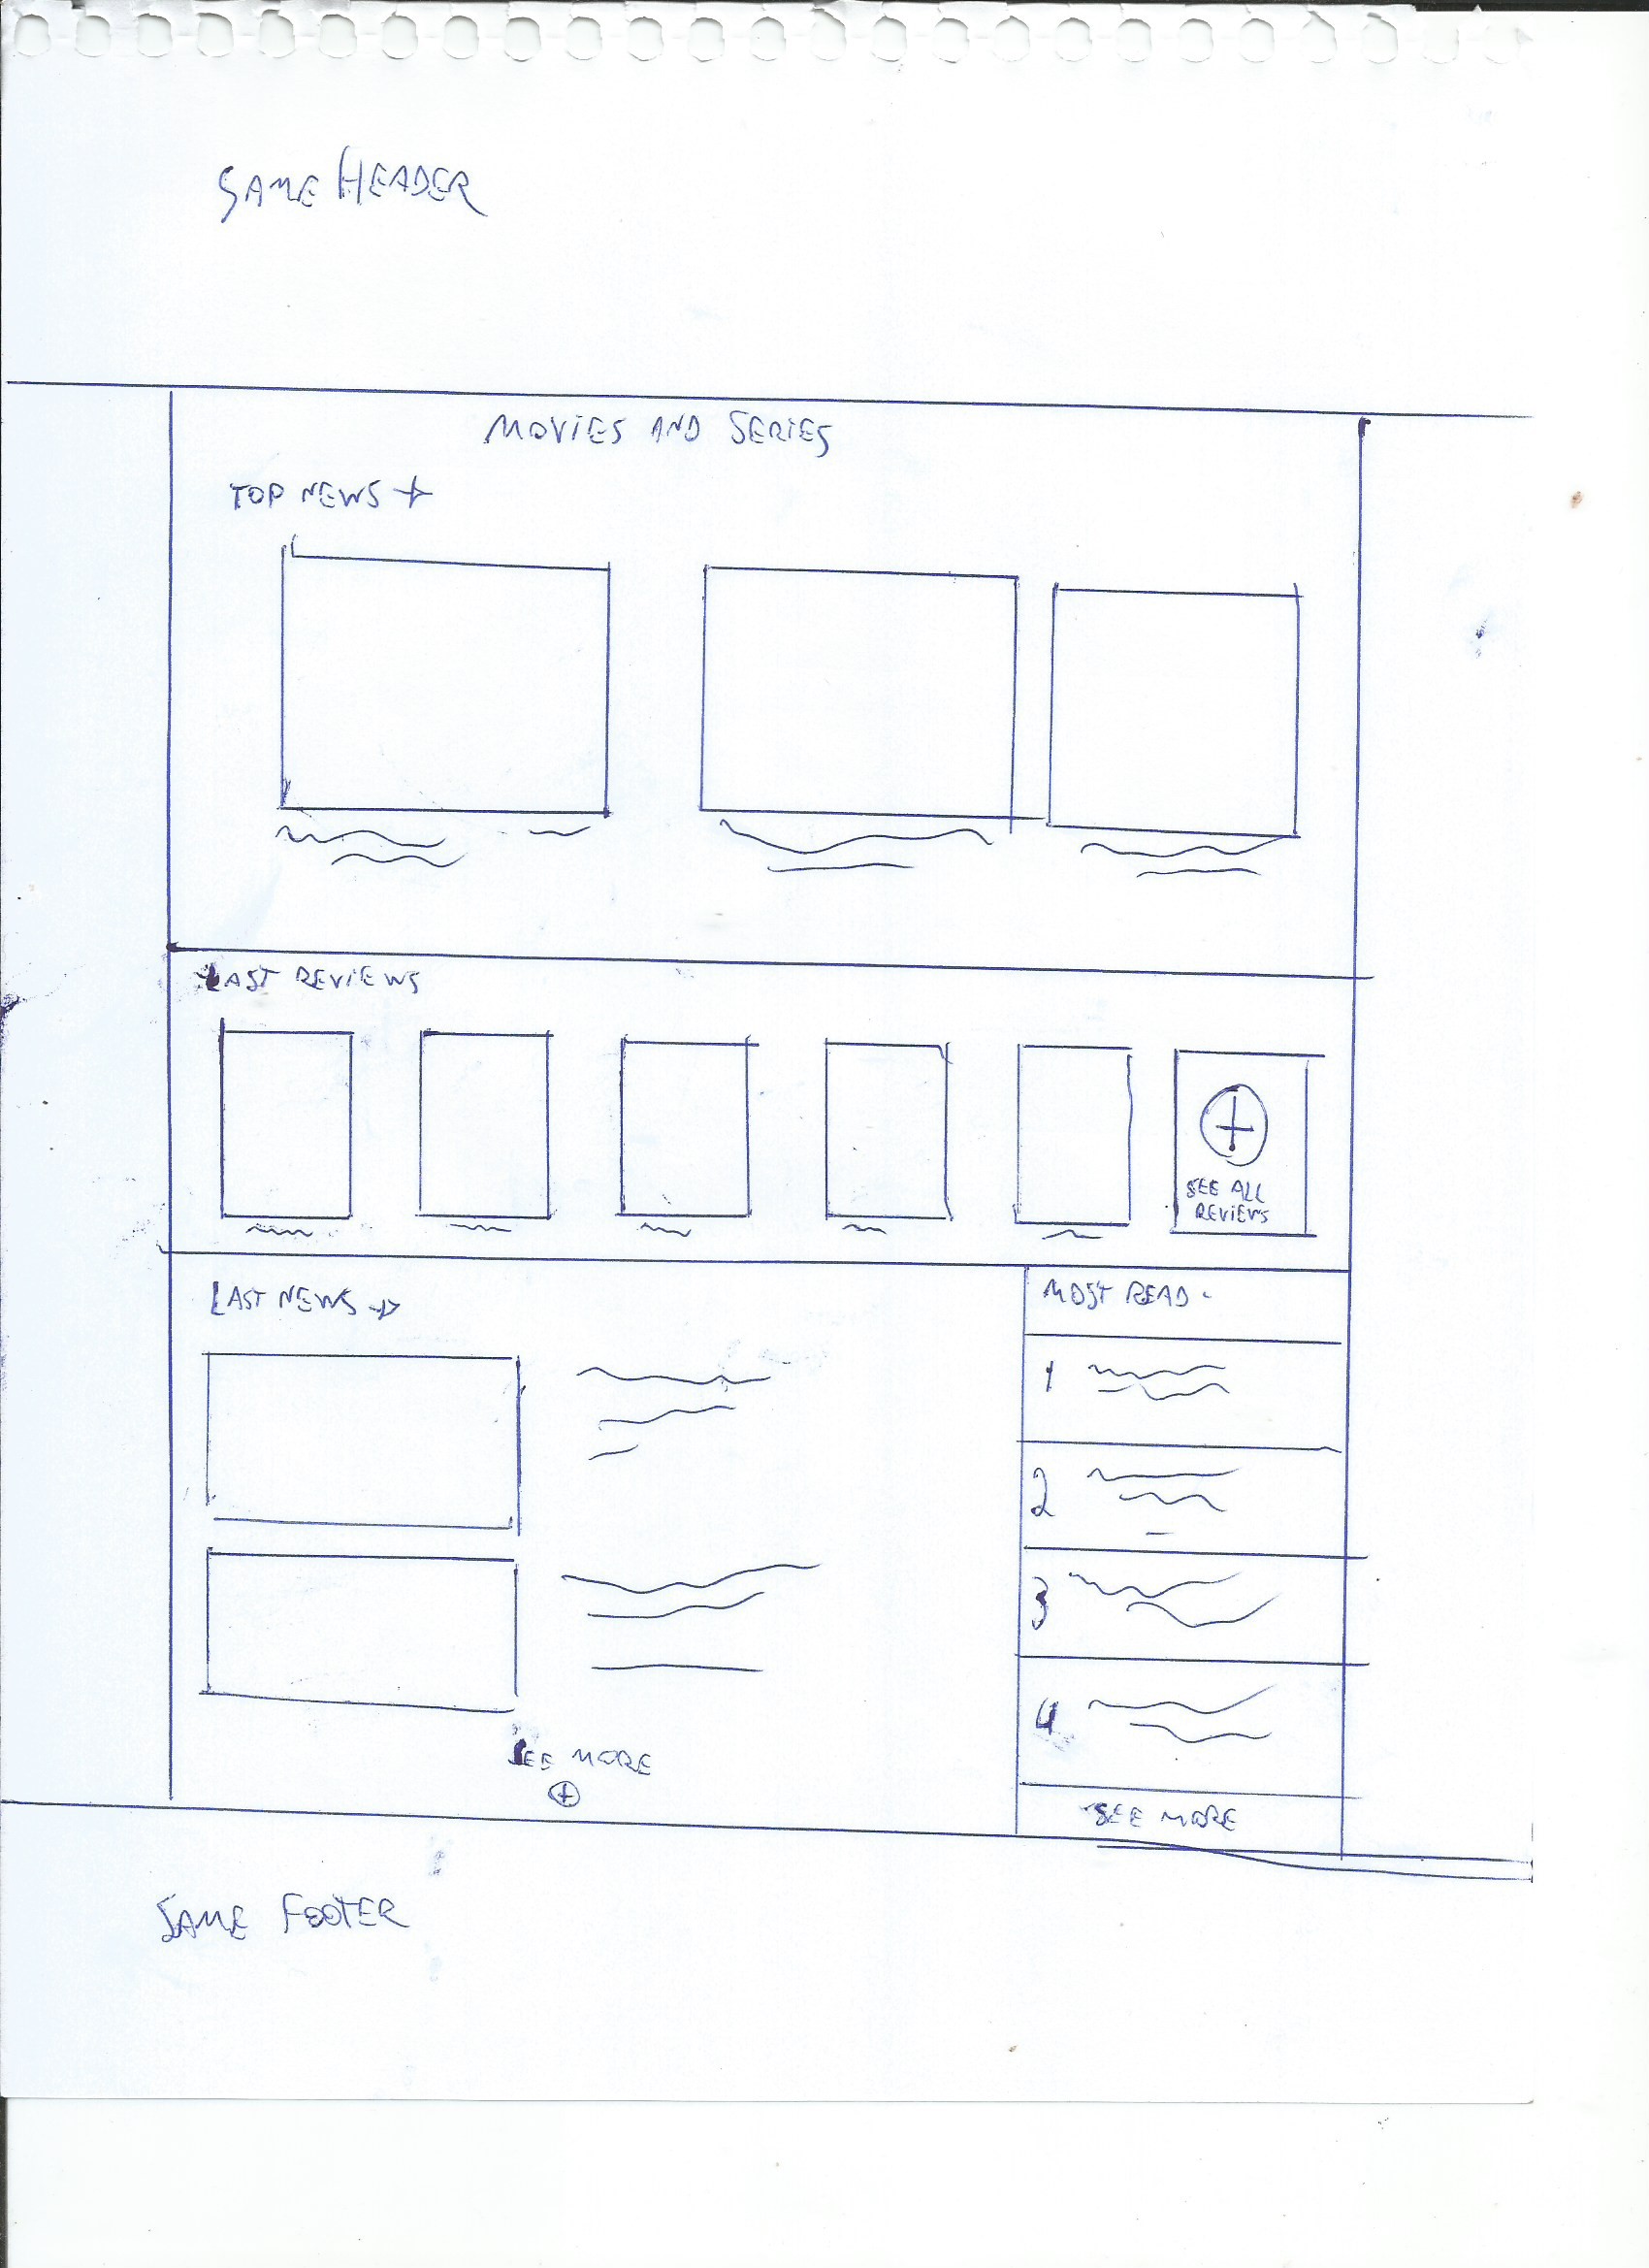 SAME HEADER
MOVIES AND SERIES
TOP NEWS →
LAST REVIEWS
+
SEE ALL
REVIEWS
LAST NEWS →
MOST READ -
1
2
3
4
SEE MORE
+
SEE MORE
SAME FOOTER